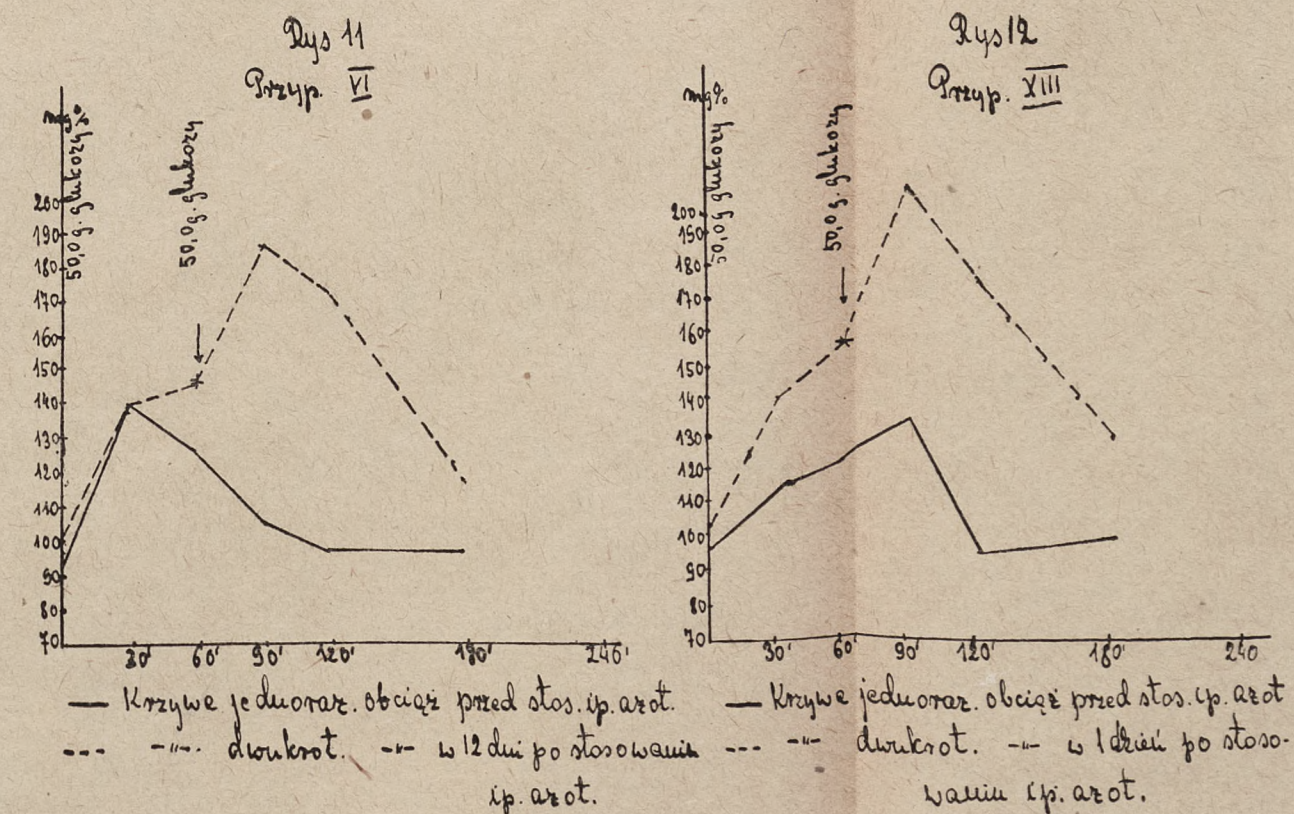 Rys 11
Przyp. VI
mg%
50,0 g. glukozy
50,0 g. glukozy
200
190
180
170
160
150
140
130
120
110
100
90
80
70
30' 60' 90' 120' 180' 240'
— Krzywe jednoraz. obciąż przed stos. ip. azot.
--- -"-. dwukrot. -"- w 12 dni po stosowaniu
ip. azot.
Rys 12
Przyp. XIII
mg%
50,0 g glukozy
50,0 g. glukozy
200
190
180
170
160
150
140
130
120
110
100
90
80
70
30' 60' 90' 120' 180' 240
— Krzywe jednoraz. obciąż przed stos. ip. azot
--- -"- dwukrot. -"- w 1 dzień po stoso-
waniu ip. azot.